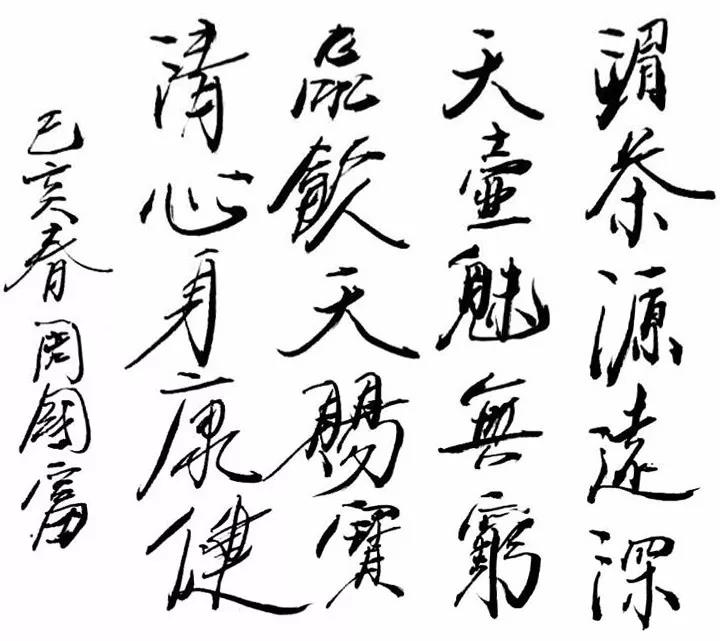 湄茶源遠深
天壺魅無窮
品飲天賜寶
清心身康健
己亥春周國富